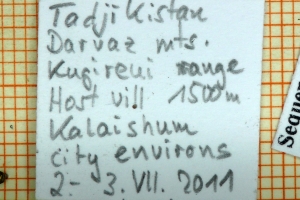 Tadjikistan
Darvaz mts.
Kugireui range
Host vill 1500m
Kalaishum
city environs
2.- 3. VII. 2011
Sequen